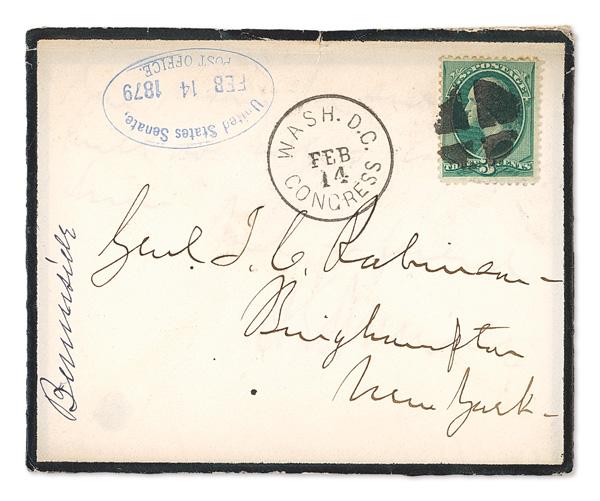 United States Senate,
FEB 14 1879
POST OFFICE.
WASH. D.C.
FEB
14
CONGRESS
U.S. POSTAGE
THREE 3 CENTS
Genl. J. C. Robinson -
Binghampton
New York -
Burnside